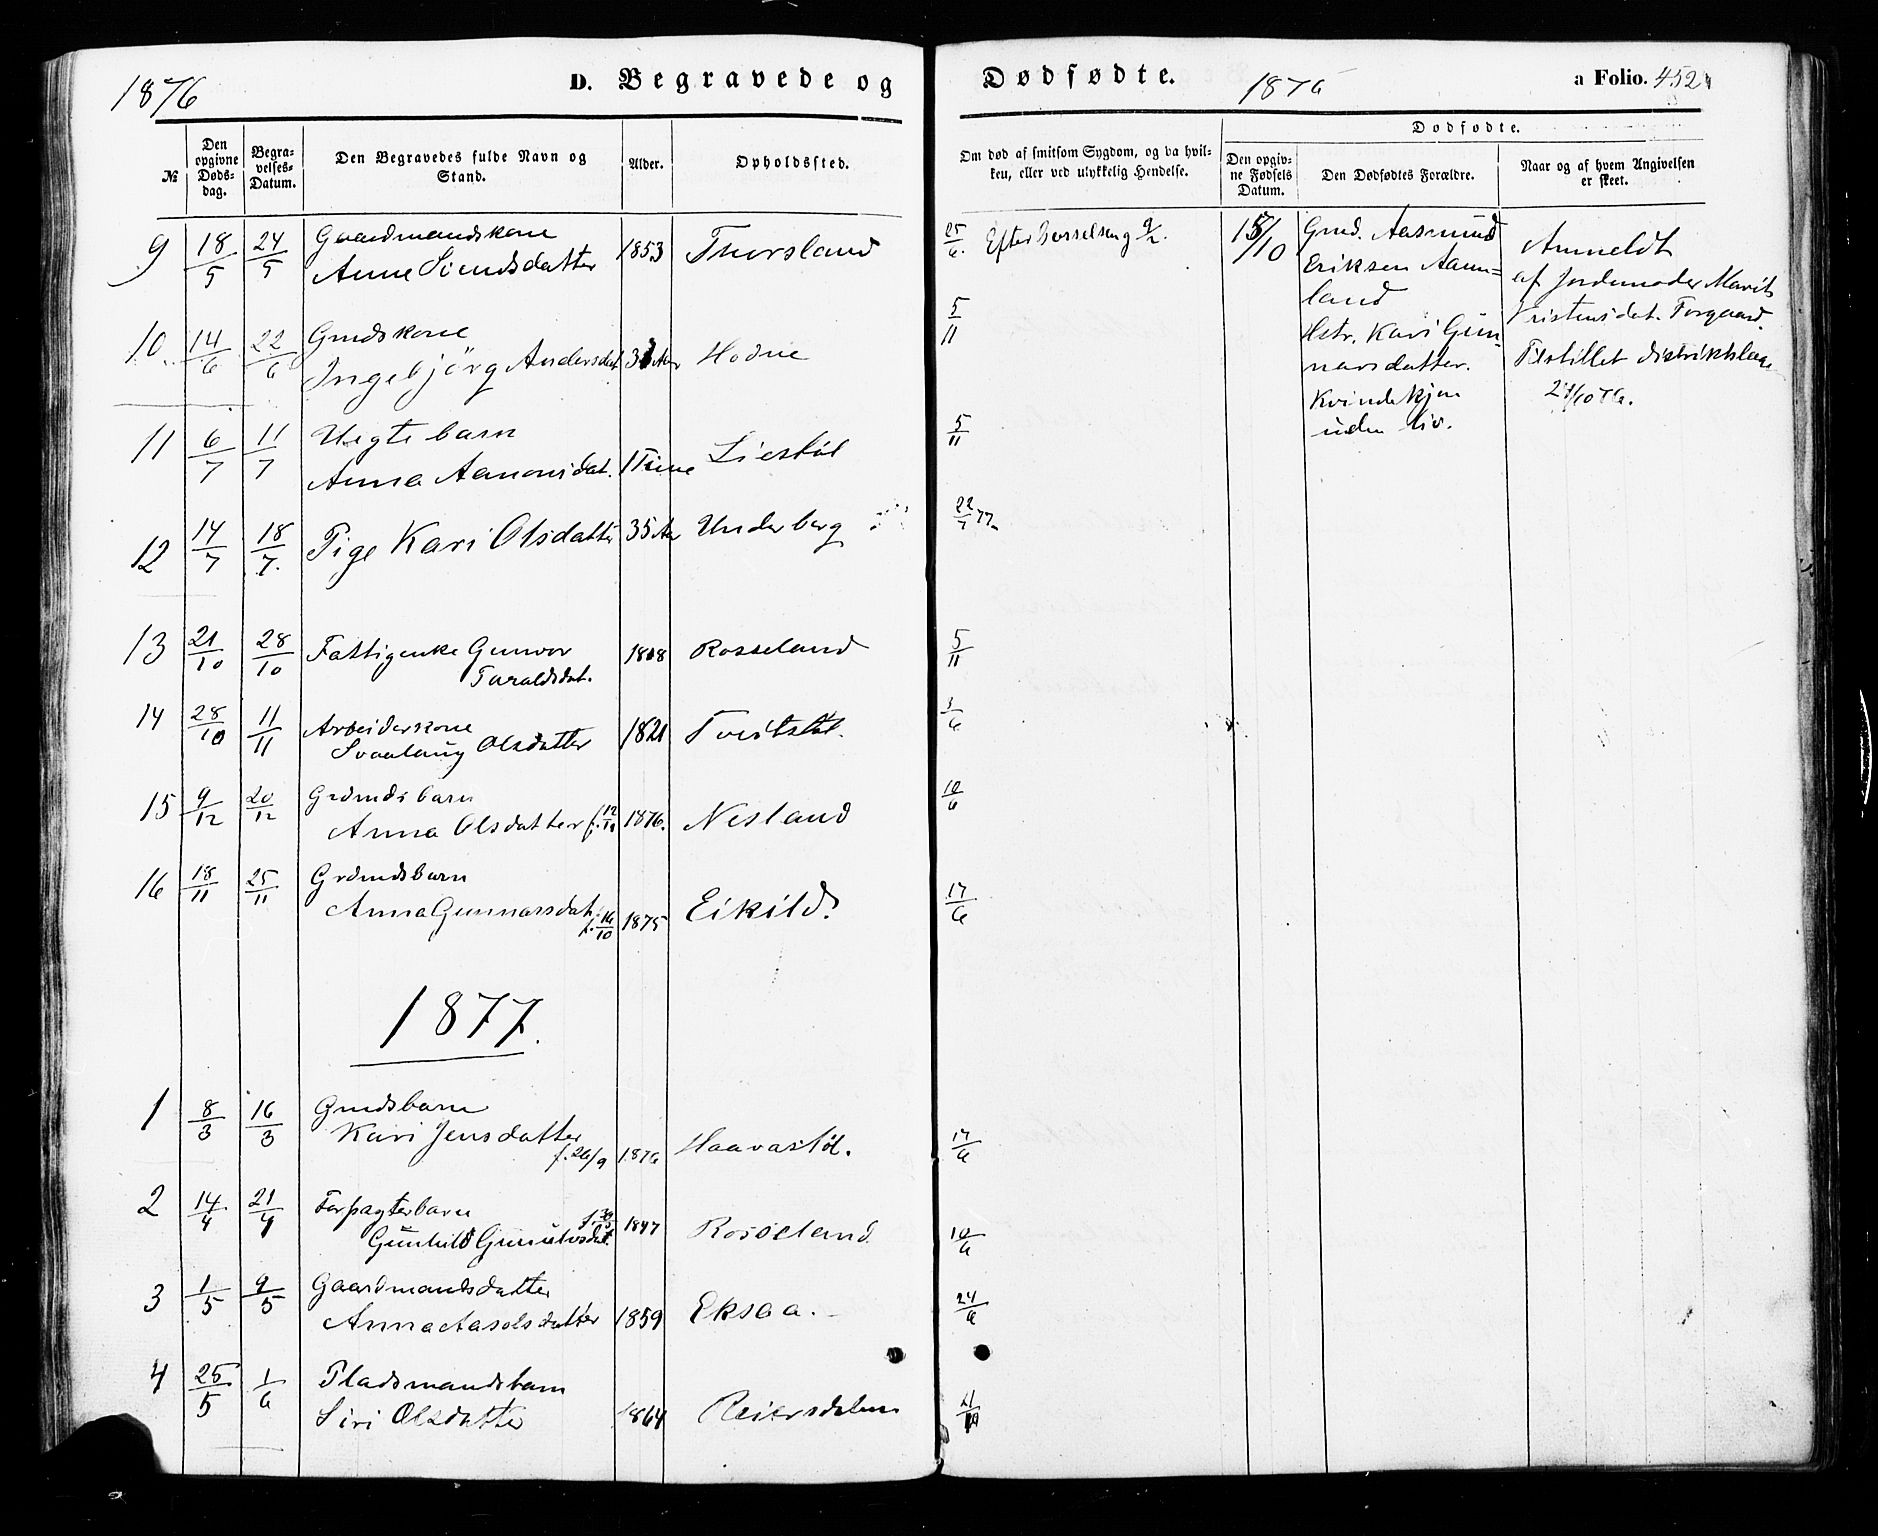 1876
D. Begravede og
Dødfødte.
1876
a Folio. 452
№
Den opgivne Døds-dag.
Begra-velses-Datum.
Den Begravedes fulde Navn og Stand.
Alder.
Opholdssted.
Om død af smitsom Sygdom, og da hvil-ken, eller ved ulykkelig Hendelse.
Dødfødte.
Den opgiv-ne Fødsels Datum.
Den Dødfødtes Forældre.
Naar og af hvem Angivelsen er skeet.
9 18/5 24/5 Gaardmandskone 1853 Thorsland 25/6 Efter Barselseng
Anne Svendsdatter
10 14/6 22/6 Gmdskone
Ingebjörg Andersdat. Aar Hodne 5/11
11 6/7 11/7 Uegte barn
Anna Aanonsdat. 1 Time Liestöl 5/11
12 14/7 18/7. Pige Kari Olsdatter 35 Aar Underberg 22/7 77
13 21/10 28/10 Fattigenke Gunvor 1808 Rosseland 5/11
Taraldsdat.
14 28/10 11/11 Arbeiderkone
Svaalaug Olsdatter 1821 Tveitstöl. 3/6
15 9/12 20/12 Grdmds barn
Anna Olsdatter f. 12/11 1876. Nesland 10/6
16 18/11 25/11 Grdmdsbarn
Anna Gunnarsdat. f. 16/10 1875 Eikild. 17/6
15/10
Gmd. Aasmund
Eriksen Aam=
land
Hstr. Kari Gun-
narsdatter.
Kvindekjøn
uden Liv.
Anmeldt
af Jordemoder Marit
Kristensdat. Torgaard.
Tilstillet distriktslæge
/10 76.
1877.
1 8/3 16/3 Gmdsbarn
Kari Jensdatter
f. 26/9 1876 Haavastöl. 17/6
2 14/4 21/4 Forpagterbarn
Gunhild Gunulvsdat. f. 30/3 1877 Rosseland 10/6
3 1/5 9/5 Gaardmandsdatter
Anna Aasolsdatter 1859 Eksaa. 24/6
4 25/5 1/6 Pladsmandsbarn
Siri Olsdatter 1864 Reiersdalen